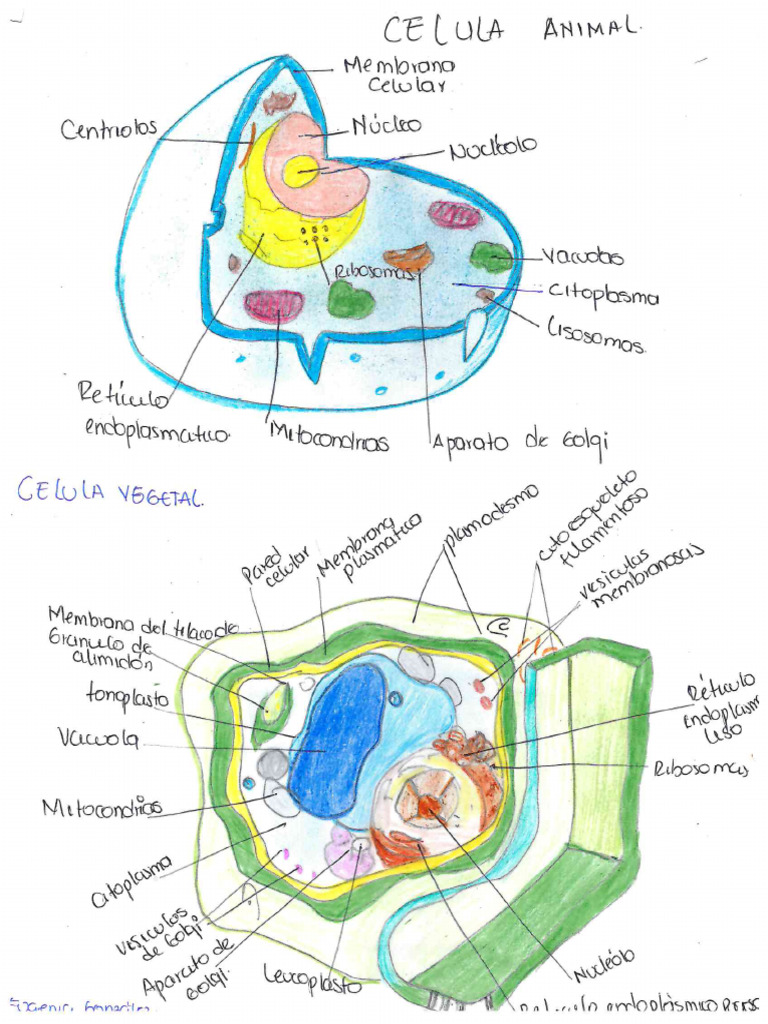 CELULA ANIMAL.
Membrana
Celular
Centriolos
Núcleo
Nucléolo
Vacuolas
Ribosomas
Citoplasma
Lisosomas.
Retículo
endoplasmatico.
Mitocondrias
Aparato de Golgi
CELULA VEGETAL.
Pared
celular
Membrana
plasmatica
plamodesmo
citoesqueleto
filamentoso
vesiculas
membranosas
Membrana del tilacoide
Granulo de
alimidón
tonoplasto
Vacuola
Retículo
Endoplasm
Liso
Ribosomas
Mitocondrias
Citoplasma
vesiculos
de Golgi
Aparato de
Golgi.
Leucoplasto
Nucleólo